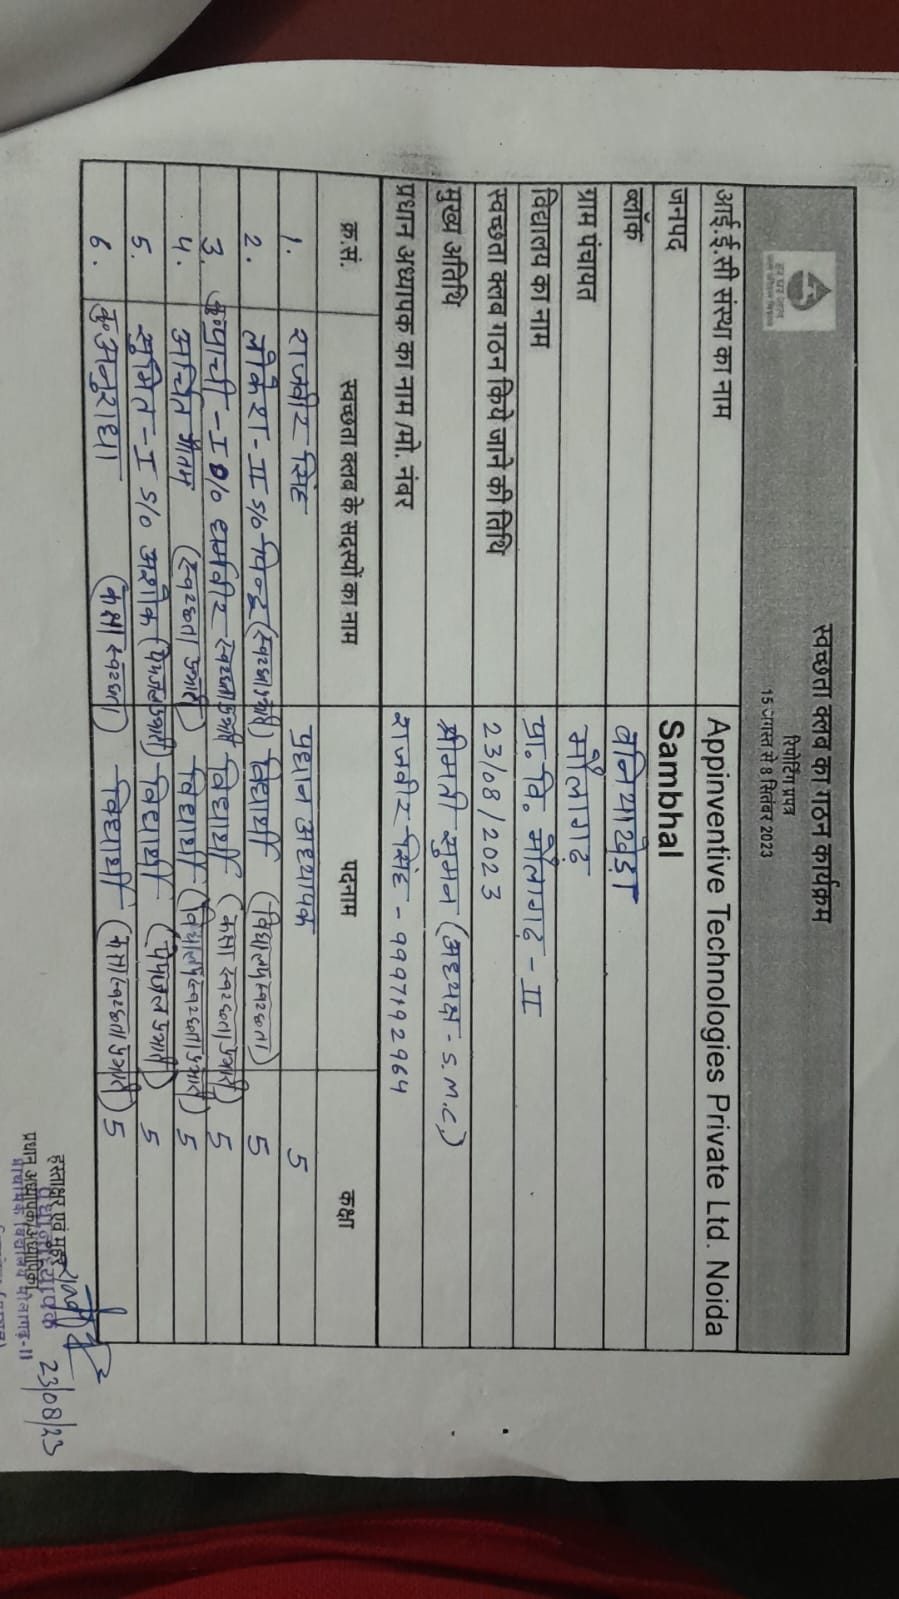 स्वच्छता क्लब का गठन कार्यक्रम
रिपोर्टिंग प्रपत्र
15 अगस्त से 8 सितंबर 2023
आई.ई.सी संस्था का नाम Appinventive Technologies Private Ltd. Noida
जनपद Sambhal
ब्लॉक बनियाखेड़ा
ग्राम पंचायत मौलागढ़
विद्यालय का नाम प्रा० वि० मौलागढ़ - II
स्वच्छता क्लब गठन किये जाने की तिथि 23/08/2023
मुख्य अतिथि श्रीमती सुमन (अध्यक्ष - S.M.C.)
प्रधान अध्यापक का नाम/मो. नंबर राजवीर सिंह - 9997192964
क्र.सं. स्वच्छता क्लब के सदस्यों का नाम पदनाम कक्षा
1. राजवीर सिंह प्रधान अध्यापक 5
2. लोकेश - II S/O (स्वच्छता प्रभारी) विद्यार्थी (विद्यालय स्वच्छता) 5
3. कु० प्राची - I D/O धर्मवीर स्वच्छता प्रभारी विद्यार्थी (कक्षा स्वच्छता प्रभारी) 5
4. अर्चित गौतम (स्वच्छता प्रभारी) विद्यार्थी (विद्यालय स्वच्छता प्रभारी) 5
5. सुमित - I S/O अशोक (पेयजल प्रभारी) विद्यार्थी (पेयजल प्रभारी) 5
6. कु० अनुराधा (कक्षा स्वच्छता) विद्यार्थी (कक्षा स्वच्छता प्रभारी) 5
हस्ताक्षर एवं मुहर
प्रधान अध्यापक/अध्यापिका
23/08/23